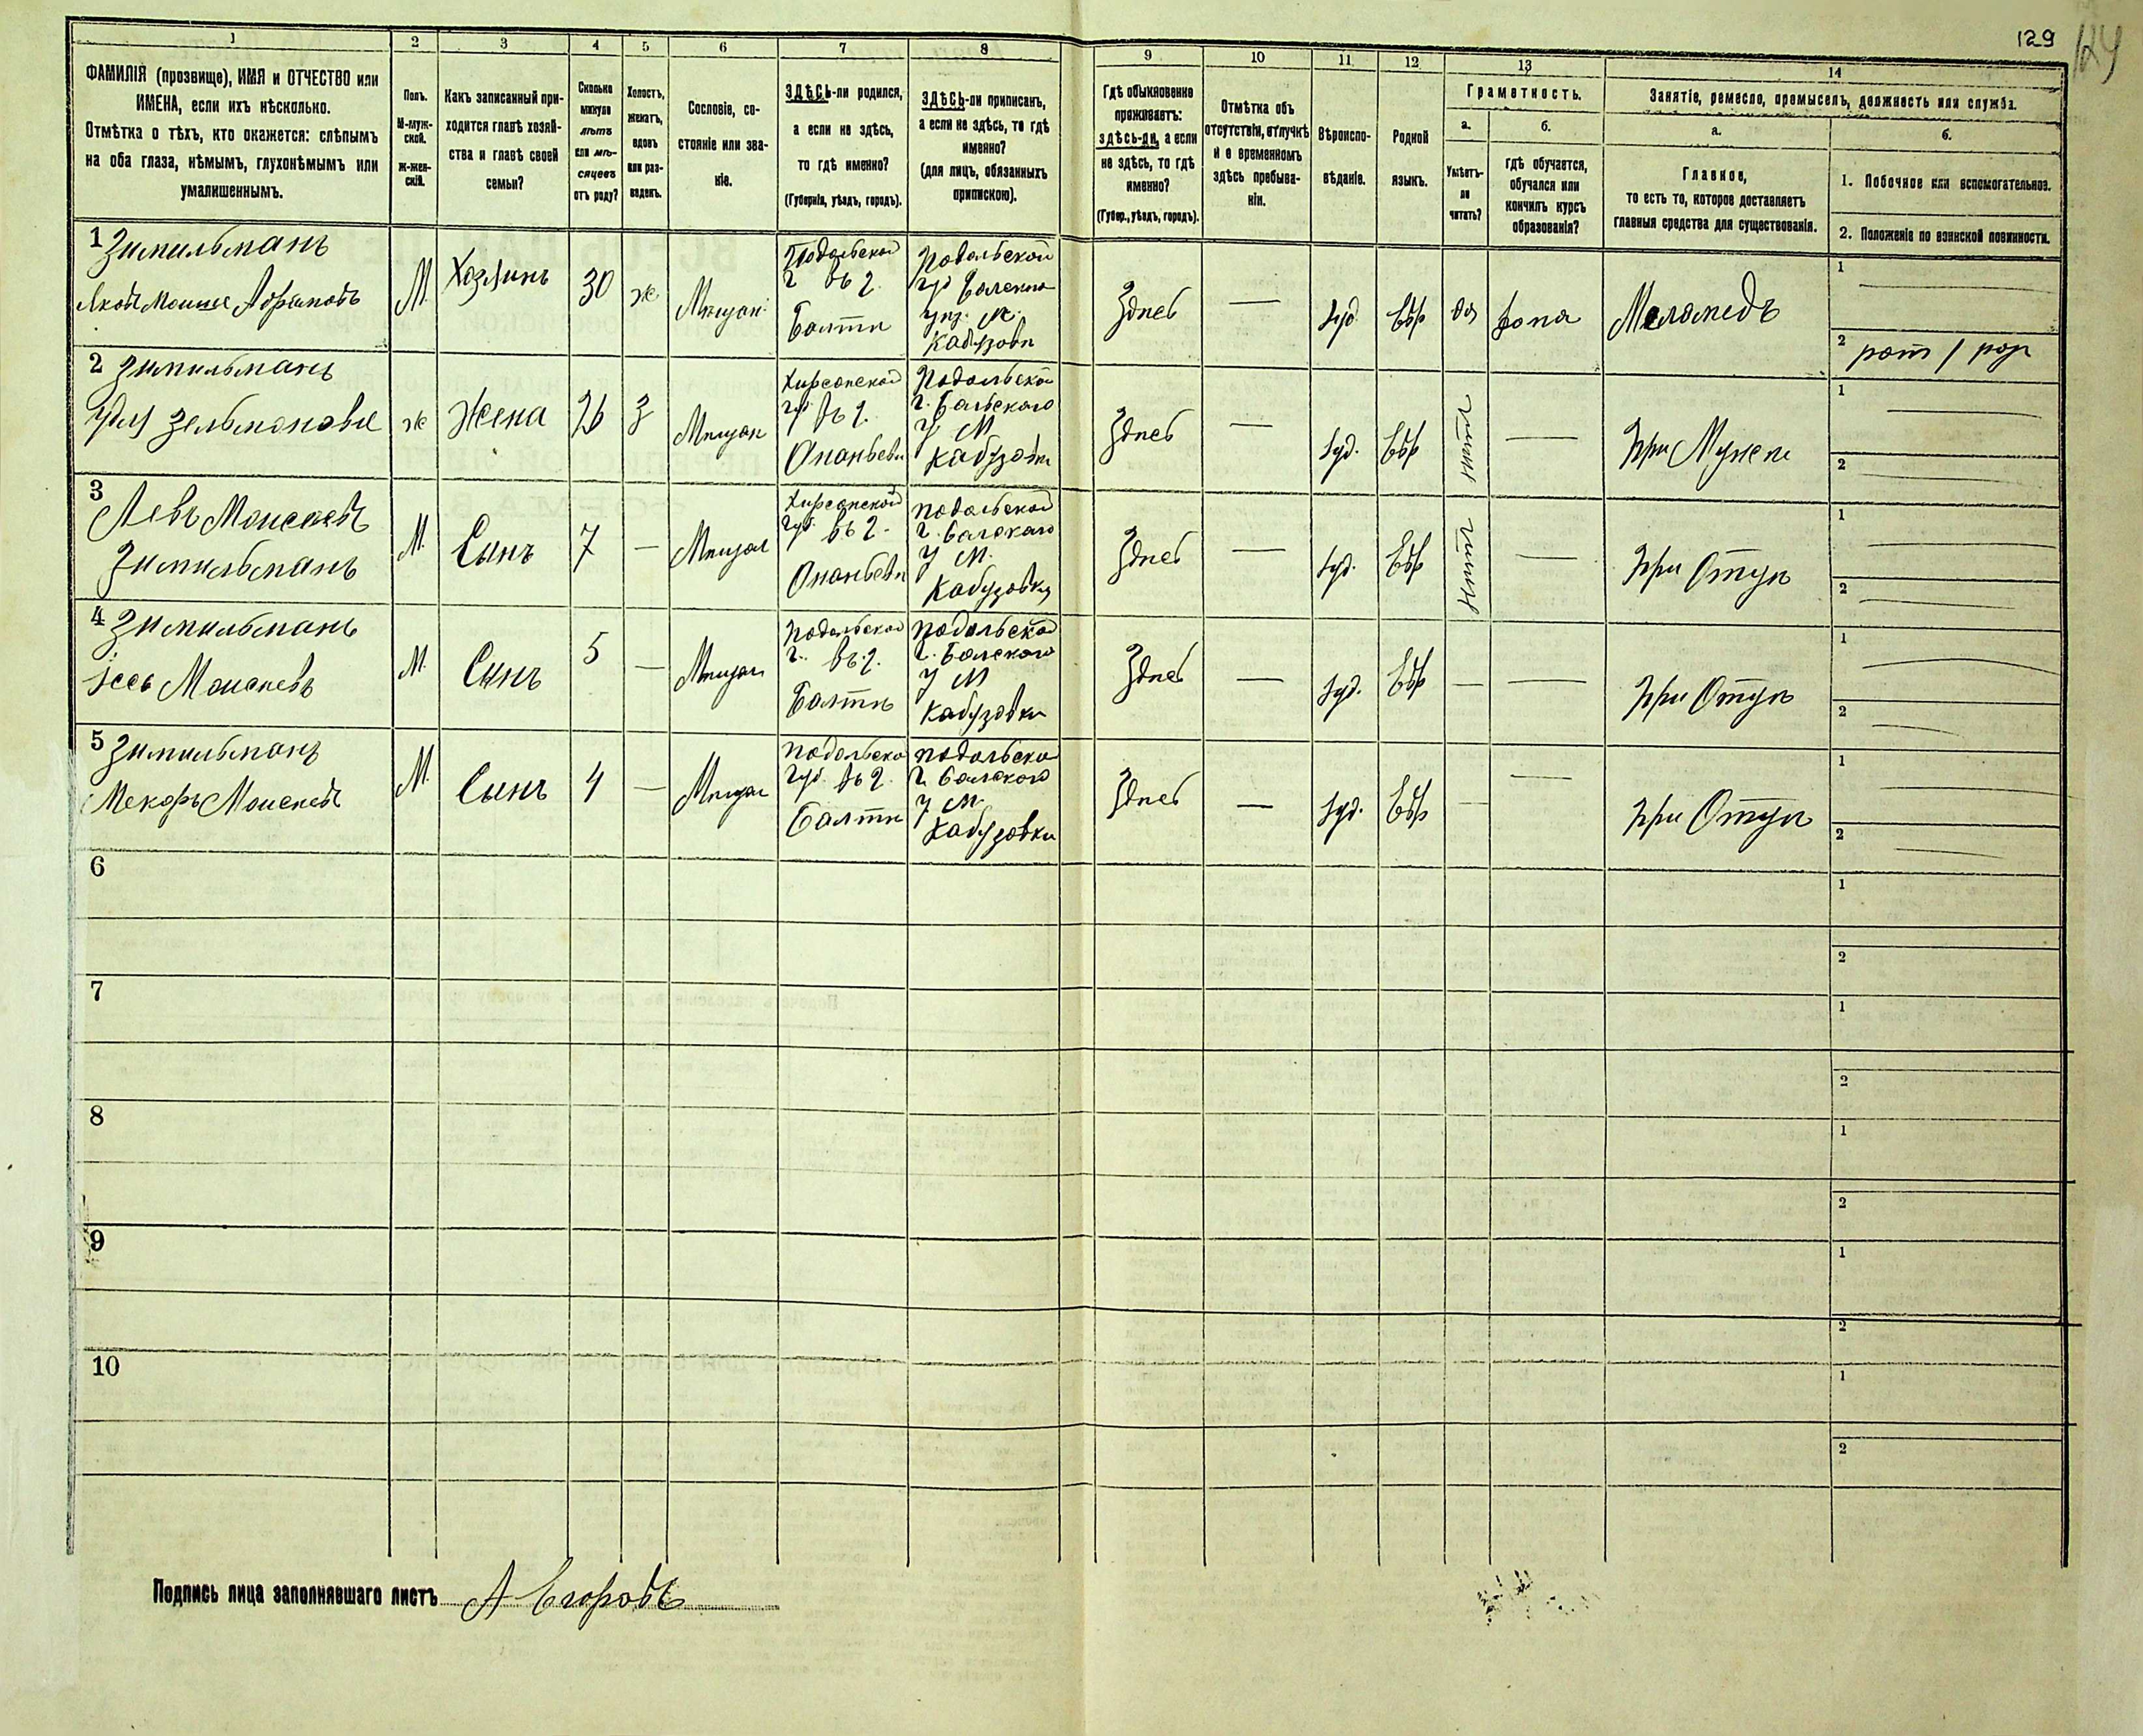 129
124
1
2
3
4
5
6
7
8
9
10
11
12
13
14
ФАМИЛІЯ (прозвище), ИМЯ и ОТЧЕСТВО или
ИМЕНА, если ихъ нѣсколько.
Отмѣтка о тѣхъ, кто окажется: слѣпымъ
на оба глаза, нѣмымъ, глухонѣмымъ или
умалишеннымъ.
Полъ.
М-муж-
ской.
ж-жен-
скій.
Какъ записанный при-
ходится главѣ хозяй-
ства и главѣ своей
семьи?
Сколько
минуло
лѣтъ
или мѣ-
сяцевъ
отъ роду?
Холостъ,
женатъ,
вдовъ
или раз-
веденъ.
Сословіе, со-
стояніе или зва-
ніе.
ЗДѢСЬ-ли родился,
а если не здѣсь,
то гдѣ именно?
(Губернія, уѣздъ, городъ).
ЗДѢСЬ-ли приписанъ,
а если не здѣсь, то гдѣ
именно?
(для лицъ, обязанныхъ
припискою).
Гдѣ обыкновенно
проживаетъ:
здѣсь-ли, а если
не здѣсь, то гдѣ
именно?
(Губер., уѣздъ, городъ).
Отмѣтка объ
отсутствіи, отлучкѣ
и о временномъ
здѣсь пребыва-
ніи.
Вѣроиспо-
вѣданіе.
Родной
языкъ.
Грамотность.
а.
Умѣетъ-
ли
читать?
б.
гдѣ обучается,
обучался или
кончилъ курсъ
образованія?
Занятіе, ремесло, промыселъ, должность или служба.
а.
Главное,
то есть то, которое доставляетъ
главныя средства для существованія.
б.
1. Побочное или вспомогательное.
2. Положеніе по воинской повинности.
1 Зитильманъ
Моише Абрамовъ
М
Хозяинъ
30
ж
Мѣщан
Подольской
г въ г.
Балтѣ
Подольской
Здѣсь
—
Іуд
Евр
да
дома
Меламедъ
1
2
2 Зитильманъ
Зельмановы
ж
Жена
26
З
Мѣщан
Херсонской
гу въ г.
Ананьеви
Подольской
г. Балскаго
у М
Кабузовки
Здѣсь
—
Іуд.
Евр
—
При Мужѣ
1
2
3
Левъ Моисеевъ
Зитильманъ
М.
Сынъ
7
—
Мѣщан
Херсонской
губ. въ г.
Ананьеви
подольской
г. Балскаго
у М.
Кабузовки
Здѣсь
—
Іуд.
Евр
—
При Отцѣ
1
2
4 Зитильманъ
Моисеевъ
М.
Сынъ
5
—
Мѣщан
Подольской
г. въ г.
Балтѣ
подольской
г. Балского
у М
Кабузовки
Здѣсь
—
Іуд.
Евр
—
—
При Отцѣ
1
2
5 Зитильманъ
Моисеевъ
М.
Сынъ
4
—
Мѣщан
подольско
губ. въ г.
Балтѣ
подольско
г. Балского
у М.
Кабузовки
Здѣсь
—
Іуд.
Евр
—
—
При Отцѣ
1
2
6
1
2
7
1
2
8
1
2
9
1
2
10
1
2
Подпись лица заполнявшаго листъ А Егоровъ